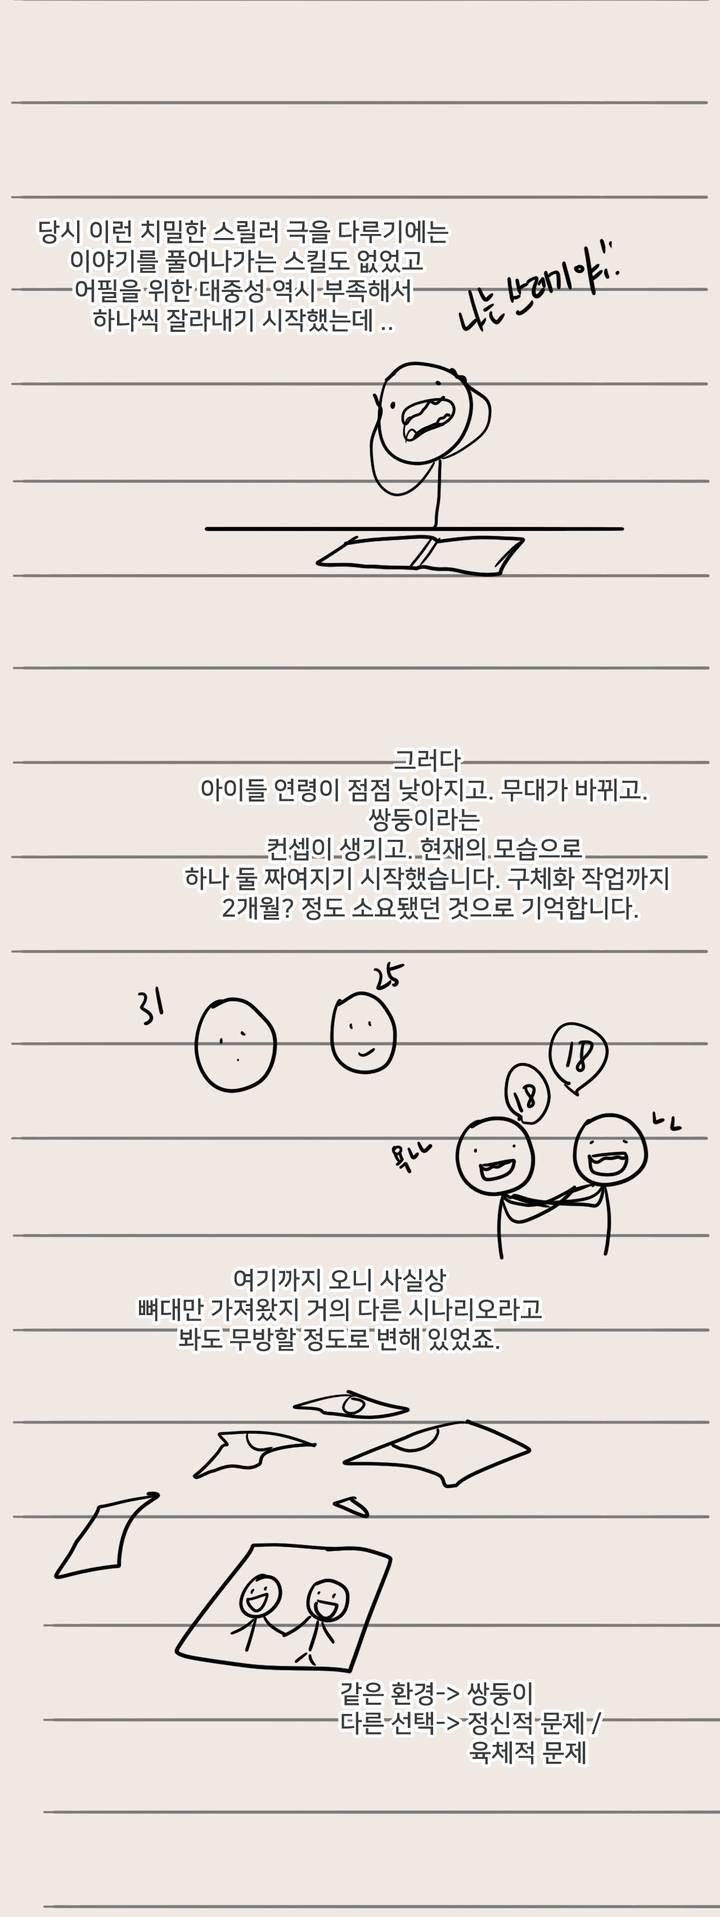 당시 이런 치밀한 스릴러 극을 다루기에는
이야기를 풀어나가는 스킬도 없었고
어필을 위한 대중성 역시 부족해서
하나씩 잘라내기 시작했는데 ..
나는 쓰레기야!!..
그러다
아이들 연령이 점점 낮아지고. 무대가 바뀌고.
쌍둥이라는
컨셉이 생기고. 현재의 모습으로
하나 둘 짜여지기 시작했습니다. 구체화 작업까지
2개월? 정도 소요됐던 것으로 기억합니다.
31
25
18
18
욕ㄴㄴ
ㄴㄴ
여기까지 오니 사실상
뼈대만 가져왔지 거의 다른 시나리오라고
봐도 무방할 정도로 변해 있었죠.
같은 환경-> 쌍둥이
다른 선택-> 정신적 문제 /
육체적 문제